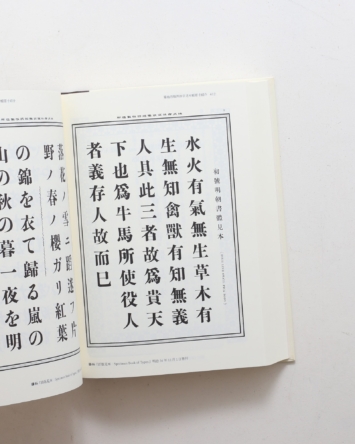 初號明朝書體見本
水火有氣無生草木有
生無知禽獸有知無義
人具此三者故爲貴天
下也爲牛馬所使役人
者義存人故而巳
落花ノ雪ニ踏迷フ片
野ノ春ノ櫻ガリ紅葉
の錦を衣て歸る嵐の
山の秋の暮一夜を明